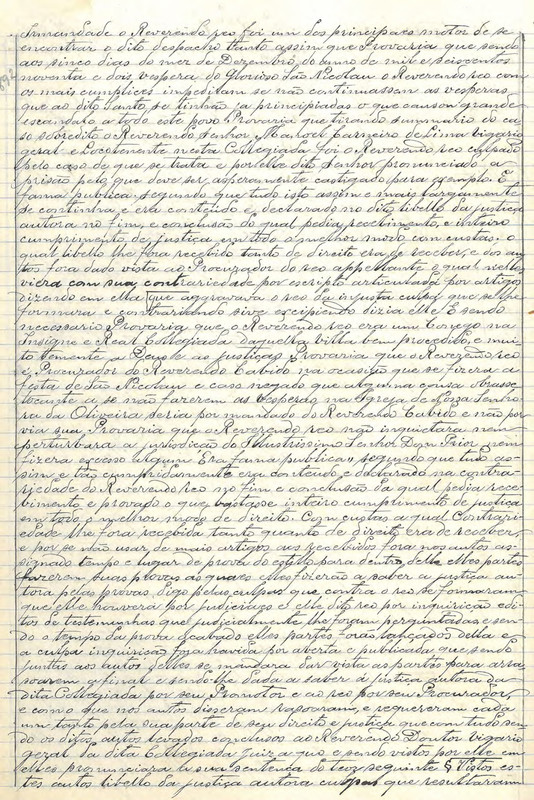 Irmandade o Reverendo reo foi um dos principaes motor de se
encontrar o dito despacho tanto assim que Provaria que sendo
aos cinco dias do mez de Dezembro do anno de mil e seiscentos
noventa e dois vespera do Glorioso São Nicolau o Reverendo reo com
os mais cumplices impediram se não continuassem as vesperas
que ao dito Santo se tinhão ja principiadas o que causou grande
escandalo a todo este povo Provaria que tirando summario do ca
so sobredito o Reverendo Senhor Manoel Carneiro de Lima vigario
geral e Locotenente nesta Collegiada foi o Reverendo reo culpado
pelo caso de que se trata e por elle dito Senhor pronunciado a
prisão pelo que deve ser asperamente castigado para exemplo. E
fama publica, segundo que tudo isto assim e mais largamente
se continha e era conteudo e declarado no dito libello da justiça
autora no fim, e conclusão do qual pedia recebimento, e inteiro
cumprimento de justiça em todo o melhor modo com custas; o
qual libello lhe fora recebido tanto de direito era de receber, e dos au
tos fora dado vista ao Procurador do reo appellante o qual
viera com sua contrariedade por escripto articulada por artigos
dizendo em ella que aggravava o reo da injusta culpa que se lhe
formara e contrariando sive excipiendo dizia elle E sendo
necessario Provaria que o Reverendo reo era um Conego na
Insigne e Real Collegiada daquella villa bem procedido, e mui
to temente a Deus e as justiças Provaria que o Reverendo reo
é Procurador do Reverendo Cabido na occasião que se fizera a
festa de São Nicolau e caso negado que alguma cousa obrasse
tocante a se não fazerem as vesperas na Igreja de Nossa Senho
ra da Oliveira seria por mandado do Reverendo Cabido e não por
via sua Provaria que o Reverendo reo não inquietara nem
perturbara a jurisdicão do Illustrissimo Senhor Dom Prior, nem
fizera excesso algum Era fama publica, segundo que tudo as-
sim e tão cumpridamente era conteudo e declarado na contra-
riedade do Reverendo reo no fim e conclusão da qual pedia rece-
bimento e provado o que bastasse inteiro cumprimento de justiça
em todo o melhor modo de direito. Com custas a qual Contrari-
edade lhe fora recebida tanto quanto de direito era de receber,
e por se não usar de mais artigos aos recebidos fora nos autos as-
signado tempo e lugar de prova do estylo para dentro delle elles partes
fazerem suas provas as quaes elles fizerão a saber a justiça au-
tora pelas provas, digo pelas culpas que contra o reo se formaram,
que elle houvera por judiciaes e elle dito reo por inquirição
tos de testemunhas que judicialmente lhe foram perguntadas e sen-
do o tempo da prova acabado elles partes forão lançados della e
a culpa inquirição fora havida por aberta e publicada que sendo
juntas aos autos delles se mandara dar vista as partes para arra
soarem a final e sendo-lhe dada a saber á justiça autora da
dita Collegiada por seu Promotor e ao reo por seu Procurador,
e como que nos autos disseram rasoaram, e requereram cada
um tanto pela sua parte de seu direito e justiça que com tudo sen-
do os ditos autos levados conclusos ao Reverendo Doutor vigario
geral da dita Collegiada juiz a quo e sendo vistos por elle em
elles pronunciara a sua sentença do teor seguinte § Vistos es-
tes autos libello da justiça autora culpas que resultaram